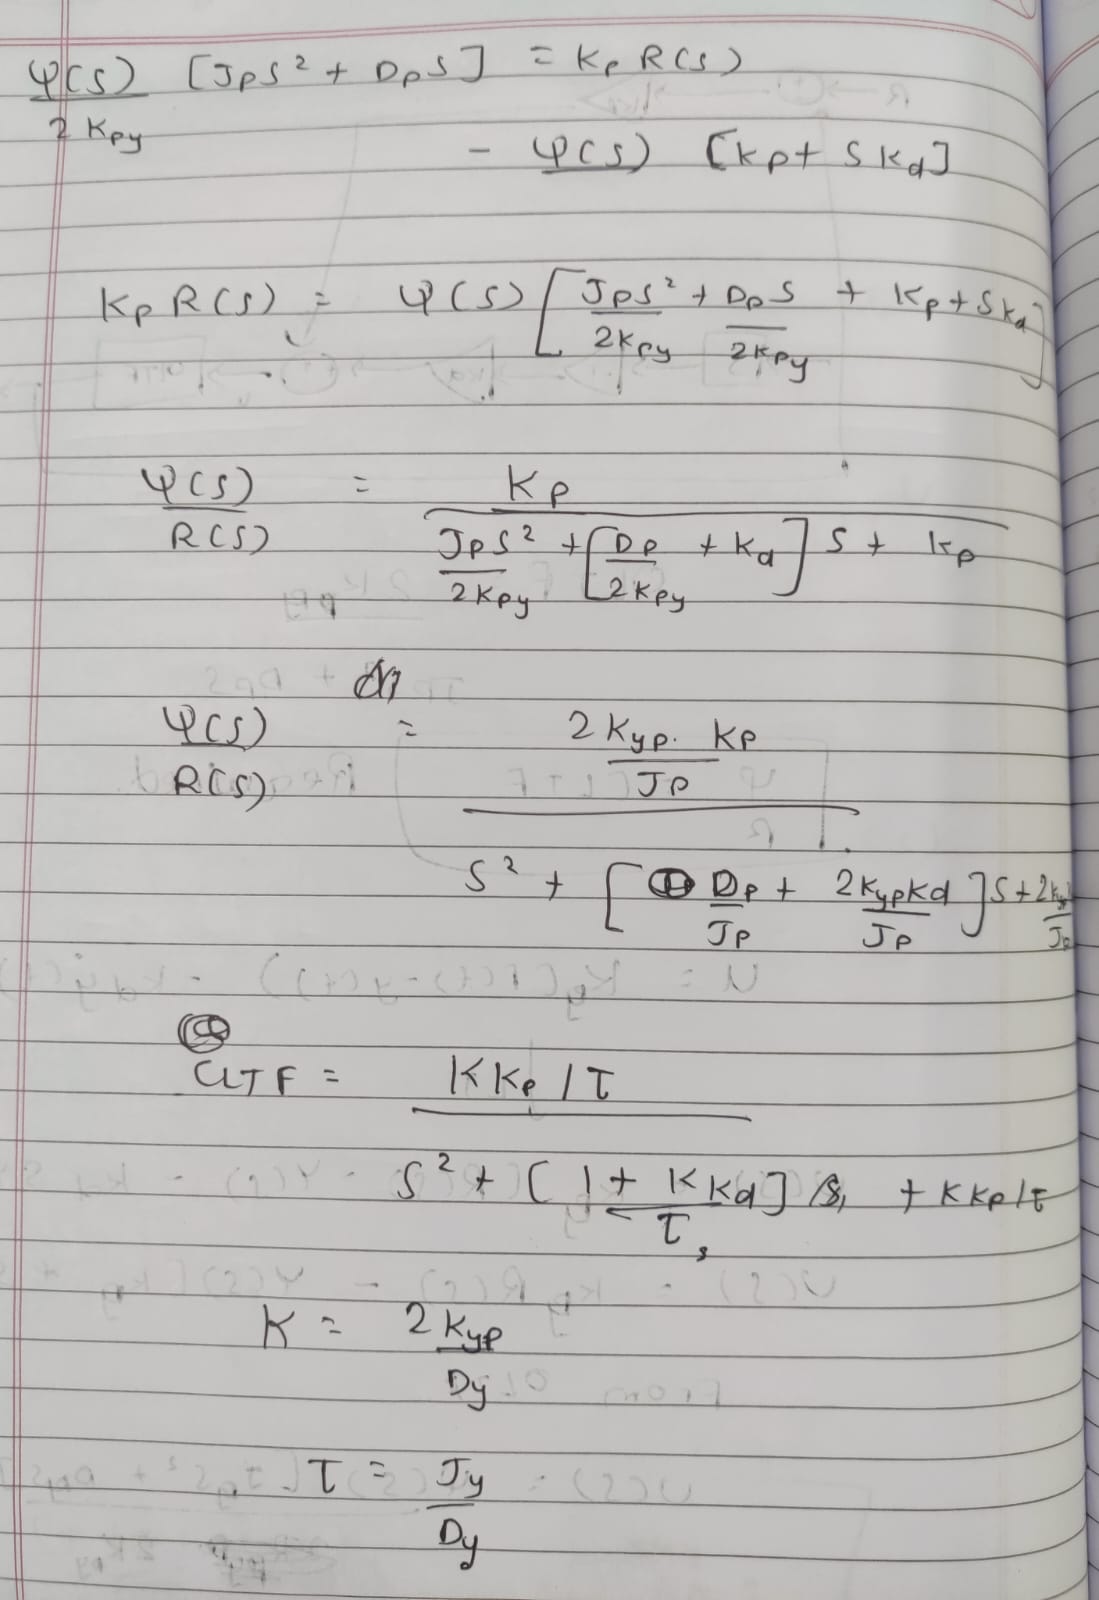 Ψ(s)/2Kpy [JpS² + DpS] = Kp R(s)
- Ψ(s) [Kp + SKd]
Kp R(s) = Ψ(s) [JpS²/2Kpy + DpS/2Kpy + Kp + SKd]
Ψ(s)/R(s) = Kp / JpS²/2Kpy + [Dp/2Kpy + Kd] S + Kp
Ψ(s)/R(s) = 2Kyp. Kp/Jp / S² + [Dp/Jp + 2KypKd/Jp] S +
CLTF = KKp/τ / S² + [1 + KKd/τ] s + KKp/τ
K = 2Kyp/Dy
τ = Jy/Dy